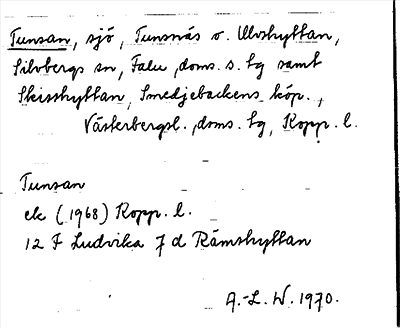 Tunsan, sjö, Tunsnäs o. Ulvshyttan,
Silvbergs sn, Falu doms. s. tg samt
Skisshyttan, Smedjebackens köp.,
Västerbergsl. doms. tg, Kopp. l.
Tunsan
ek (1968) Kopp. l.
12 F Ludvika 7 d Rämshyttan
A.-L. W. 1970.